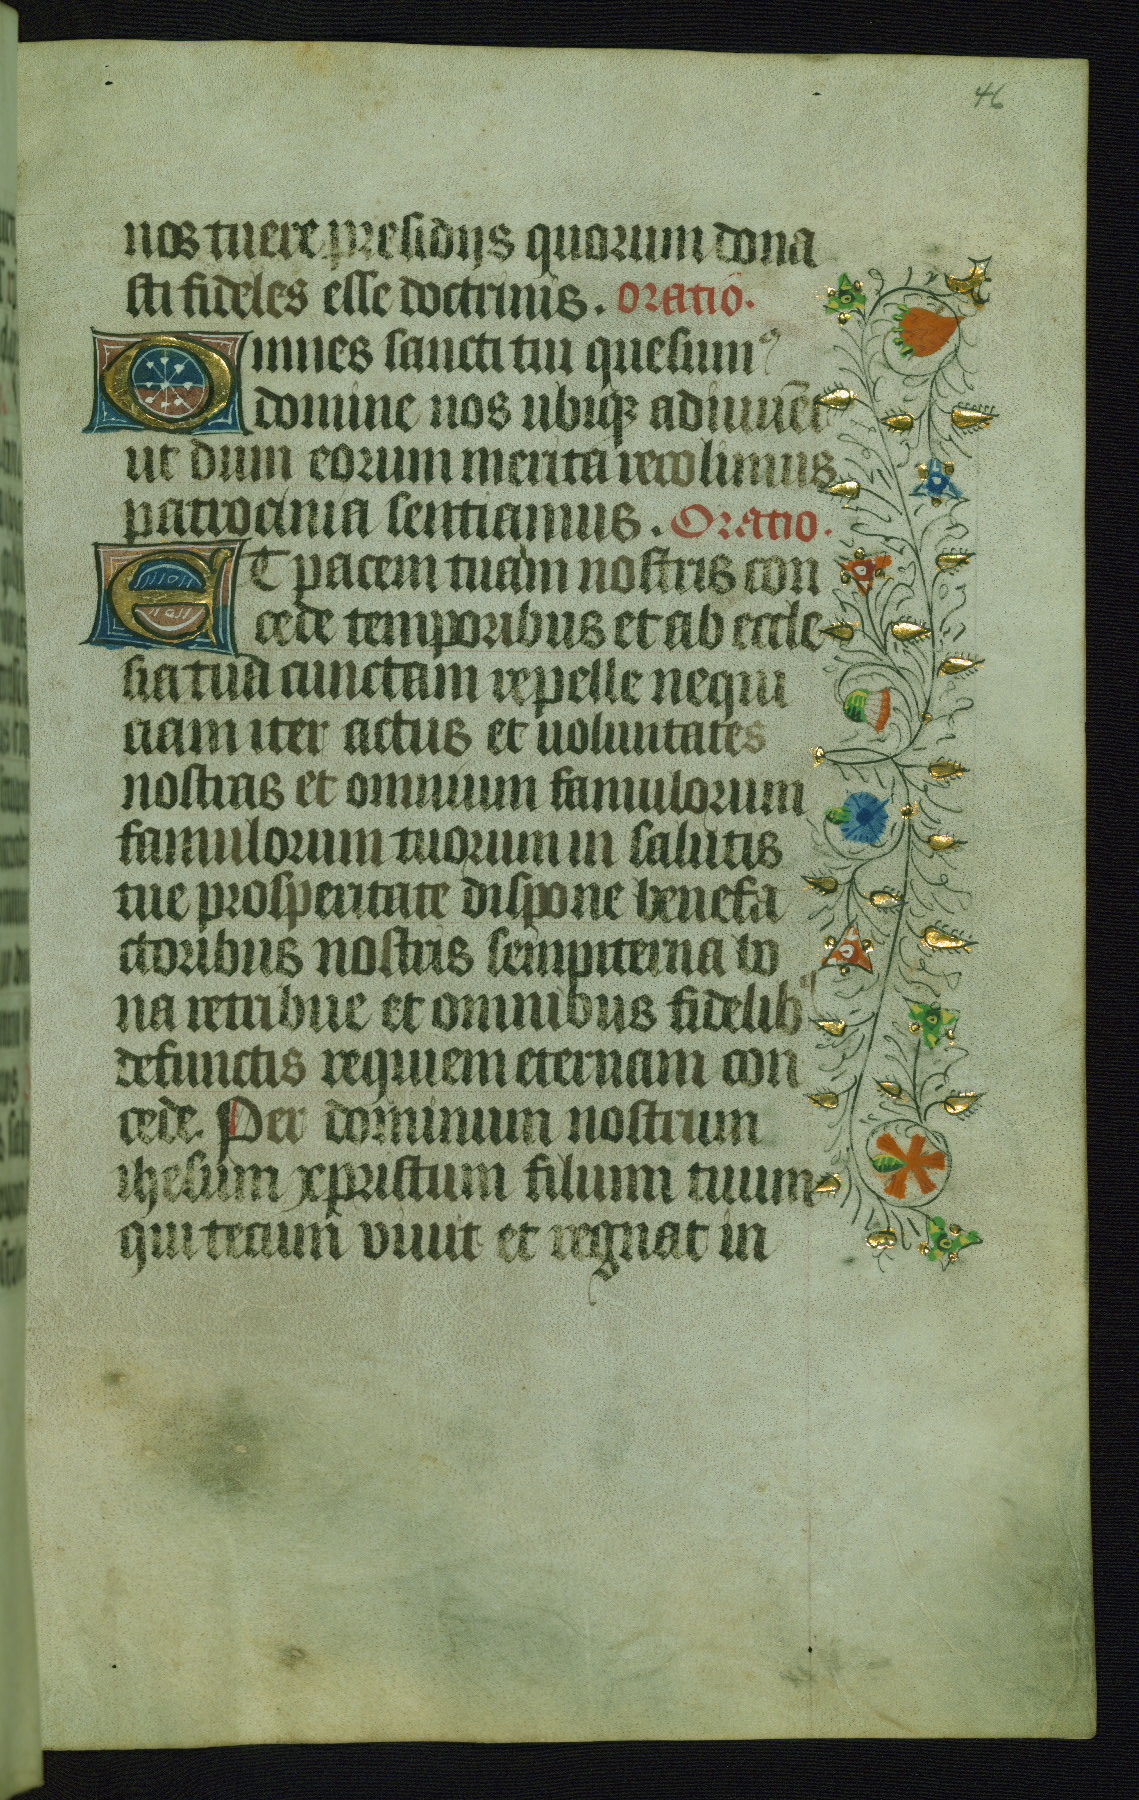 46
nos tuere presidijs quorum dona
sti fideles esse doctrinis. oratio.
Omnes sancti tui quesumꝰ
domine nos ubiqꝫ adiuuēt
ut dum eorum merita recolimus
patrocinia sentiamus. Oratio.
ET pacem tuam nostris con
cede temporibus et ab eccle
sia tua cunctam repelle nequi
ciam iter actus et uoluntates
nostras et omnium famulorum
famulorum tuorum in salutis
tue prosperitate dispone benefa
ctoribus nostris sempiterna bo
na retribue et omnibus fidelibꝰ
defunctis requiem eternam con
cede. Per dominum nostrum
ihesum xpristum filium tuum
qui tecum viuit et regnat in